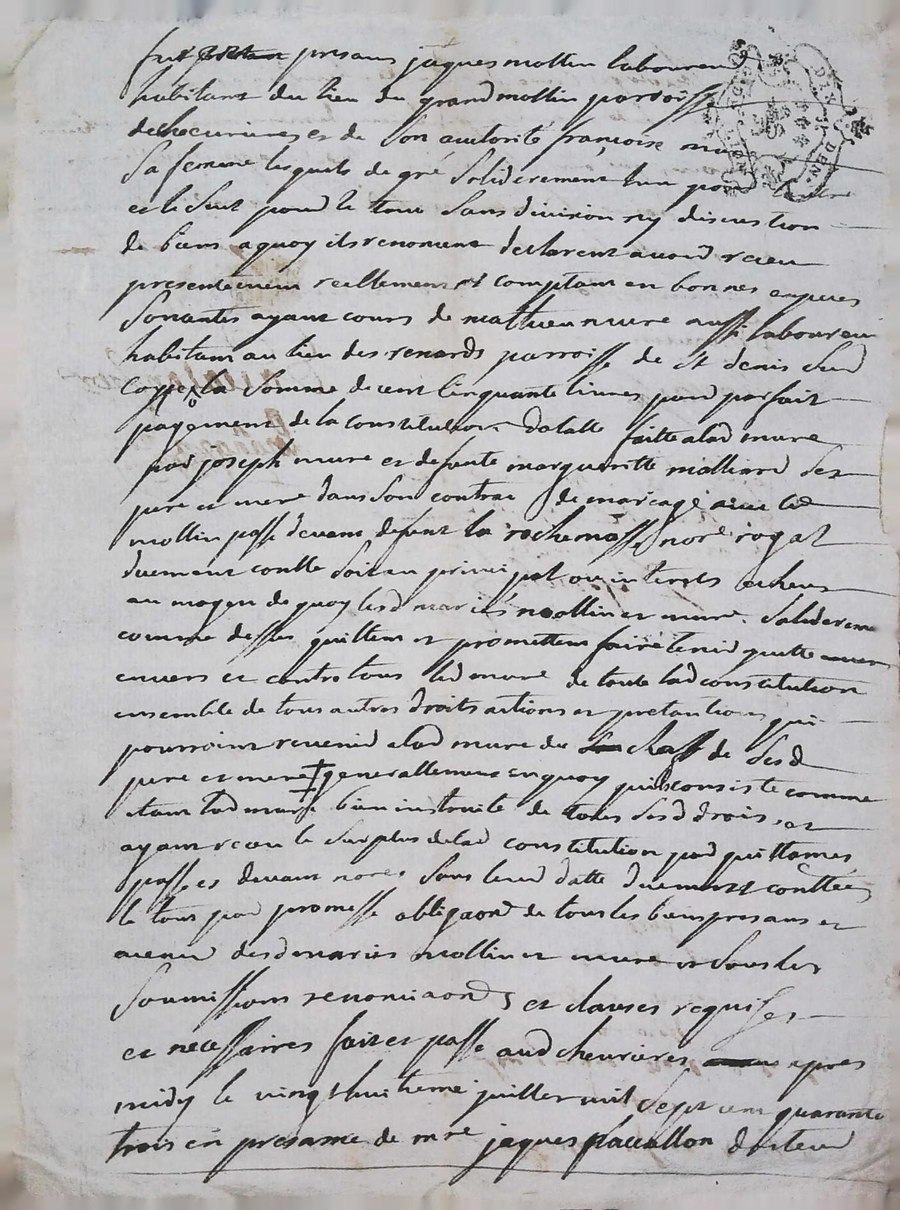 fut presans jaques mollin laboureur
habitant du lieu du grand mollin parroisse
de checurieres et de son authorité françoise mure
sa femme lesquels de gré soliderement l'un pour lautre
et le seul pour le tout sans division ny discution
de biens a quoy ils renoncent declarent avoir receu
presentement reellement et comptant en bonnes especes
sonantes ayant cours de mathieu mure aussi laboureur
habitant au lieu des renards parroisse de st denis sur
coyse la somme de cent cinquante livres pour parfait
payement de la constitution dotalle faitte a lad mure
par joseph mure et defunte margueritte molliard ses
pere et mere dans son contrat de mariage avec led
mollin passé devant defunt la rochemasse nore royal
duement contlle soit en principal ou interets echeus
au moyen de quoy lesd mariés mollin et mure soliderement
comme dessus quittent et promettent faire tenir quitte
envers et contre tous led mure de toute lad constitution
ensemble de tous autres droits actions et pretantions qui
pourroint revenir a lad mure du chef de sesd
pere et mere generallement en quoy quils consiste comme
etant lad mure bien instruite de tous sesd droits, et
ayant receu le surplus de lad constitution par quittances
passées devant nores sous leur datte duement contllées
le tout par promesse obligaon de tous les biens presans et
avenir desd mariés mollin et mure et sous les
soumissions renonciaons et clauses requises
et necessaires fait et passé aud chevrieres apres
midy le vingt huitieme juillet mil sept cent quarante
trois en presance de mre jaques pavallon docteur